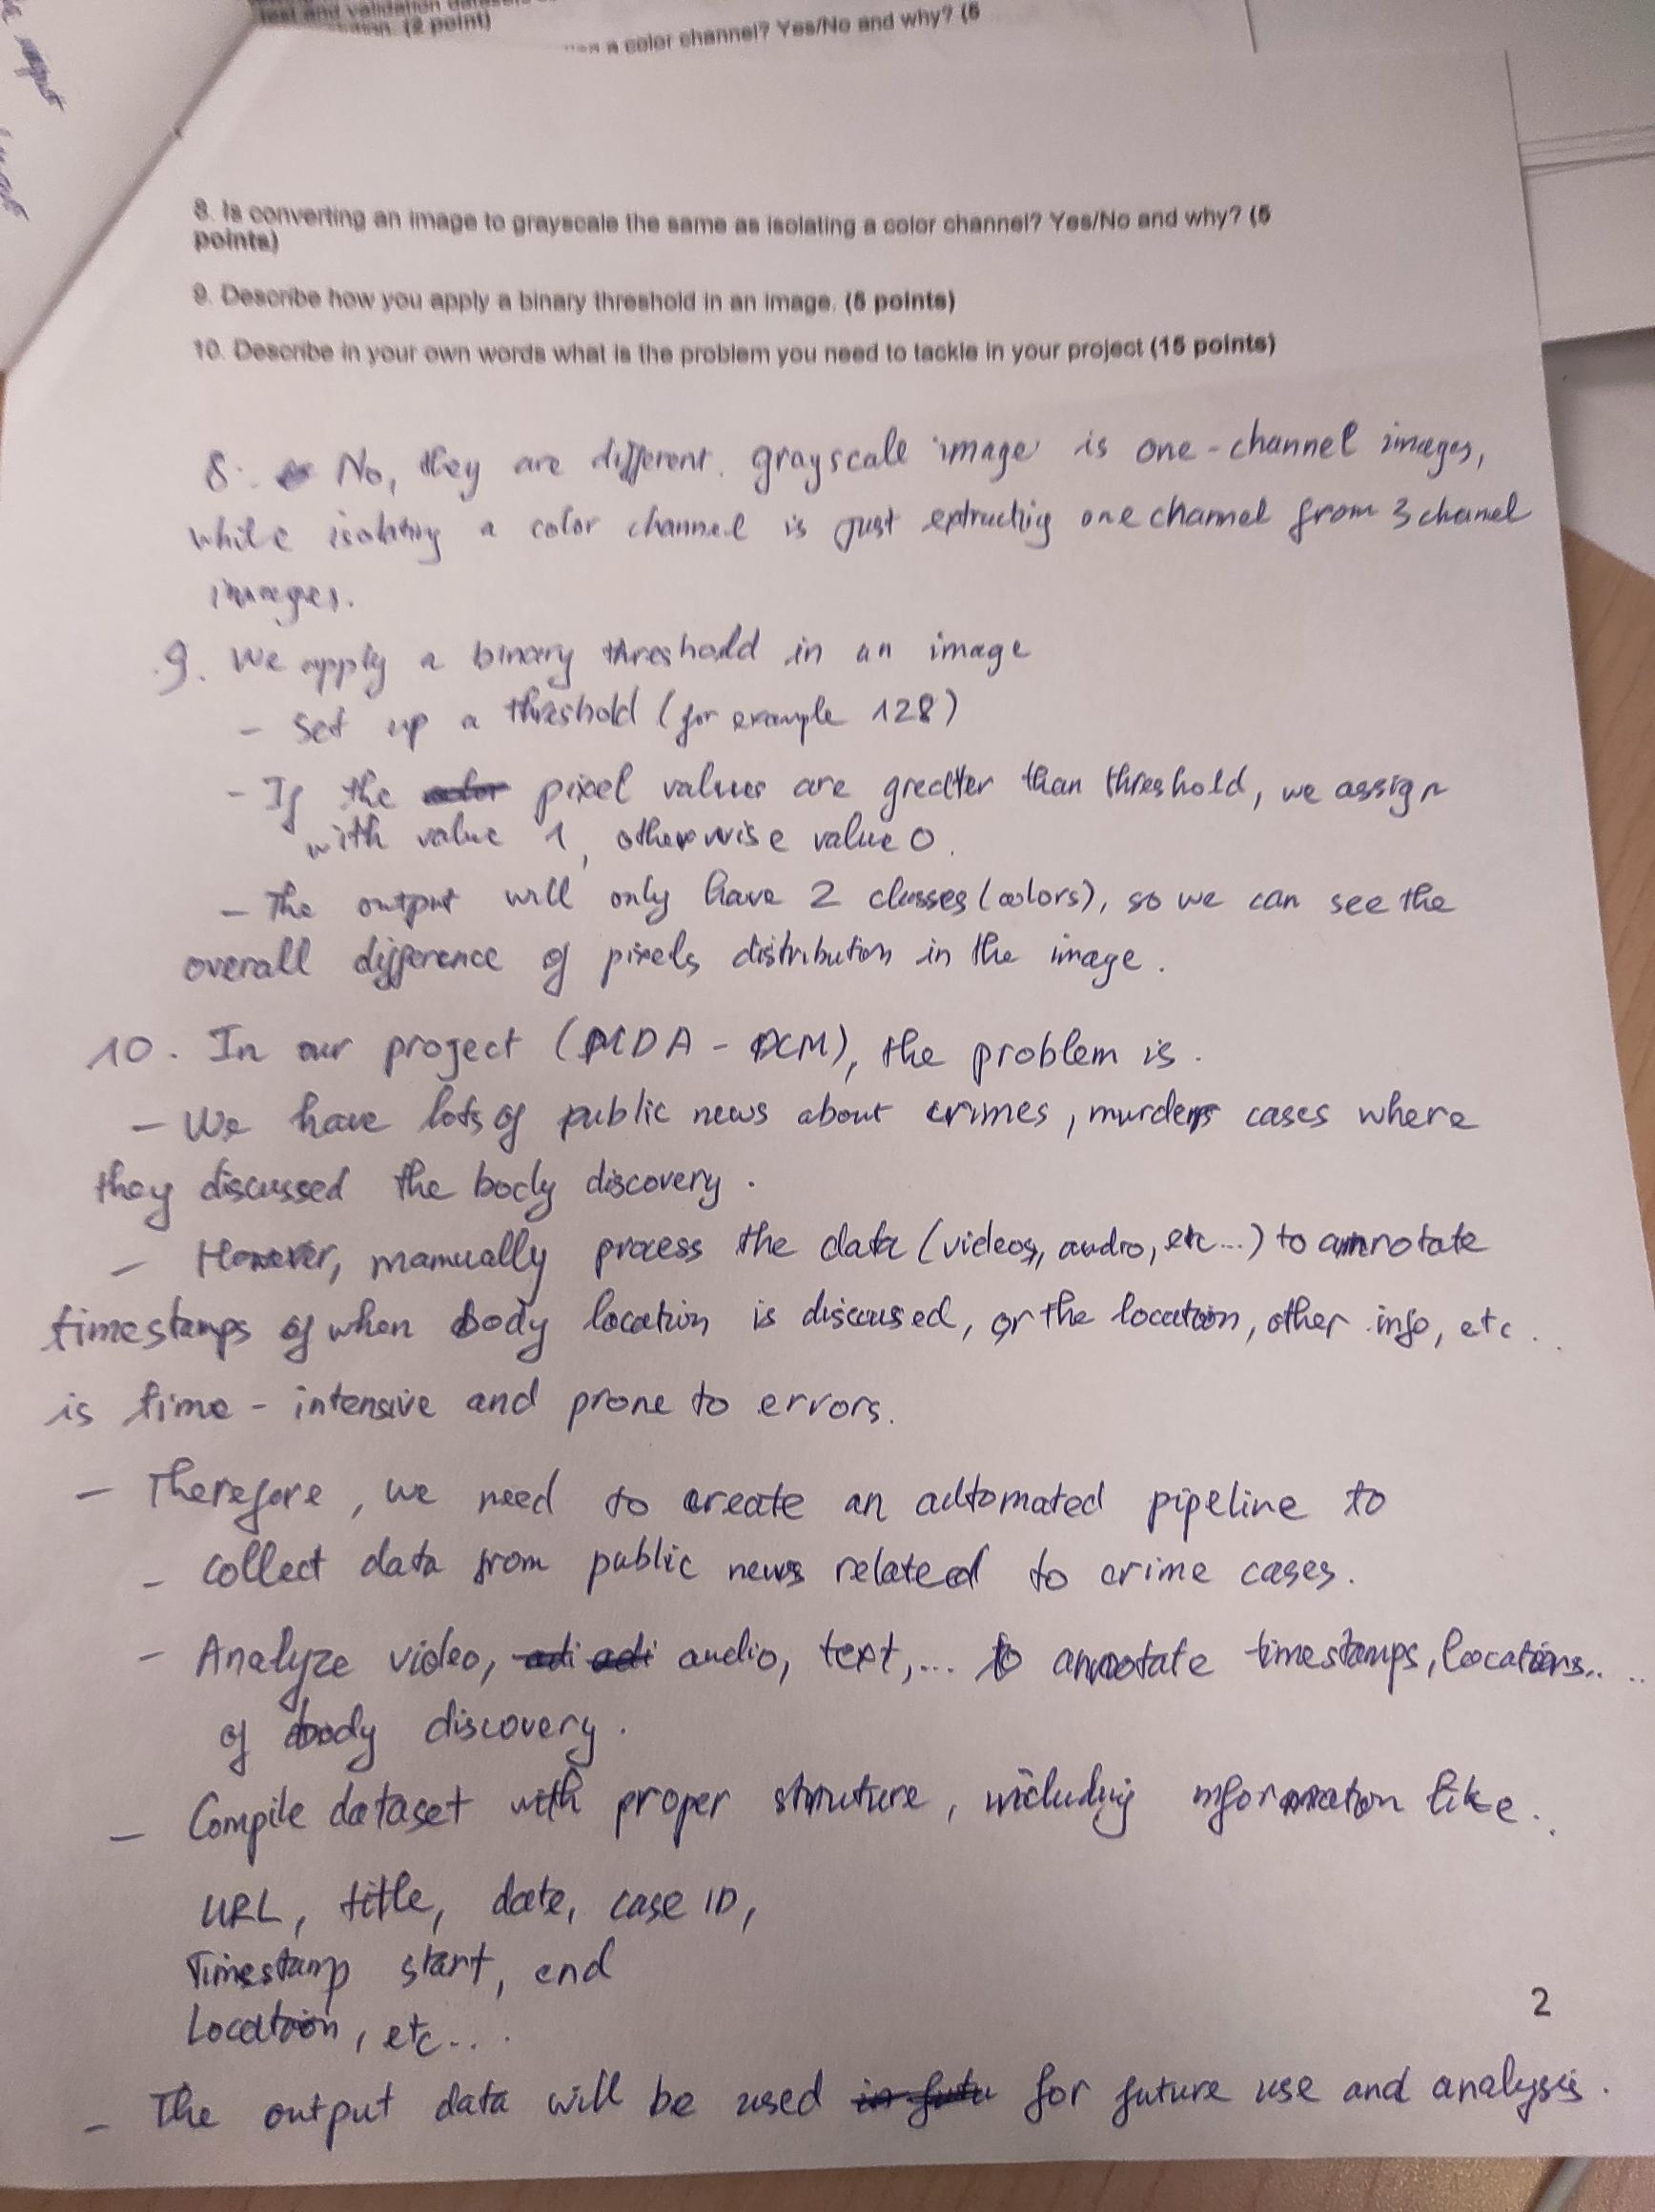 test and validation
(2 point)
a color channel? Yes/No and why? (5
8. Is converting an image to grayscale the same as isolating a color channel? Yes/No and why? (5
points)
9. Describe how you apply a binary threshold in an image. (5 points)
10. Describe in your own words what is the problem you need to tackle in your project (15 points)
8. No, they are different. grayscale image is one-channel images,
while isolating a color channel is just extracting one channel from 3 chanel
images.
9. We apply a binary threshold in an image
- Set up a threshold (for example 128)
- If the pixel values are greatter than threshold, we assign
with value 1, otherwise value 0.
- The output will only have 2 classes (colors), so we can see the
overall difference of pixels distribution in the image.
10. In our project (MDA - DCM), the problem is.
- We have lots of public news about crimes, murders cases where
they discussed the body discovery.
- However, manually process the data (videos, audio, etc...) to annotate
timestamps of when body location is discussed, or the location, other info, etc..
is time-intensive and prone to errors.
- Therefore, we need to create an automated pipeline to
- collect data from public news related to crime cases.
- Analyze video, audio, text,... to annotate timestamps, locations....
of body discovery.
- Compile dataset with proper struture, including information like..
URL, title, date, case ID,
Timestamp start, end
Location, etc...
2
- The output data will be used for future use and analysis.